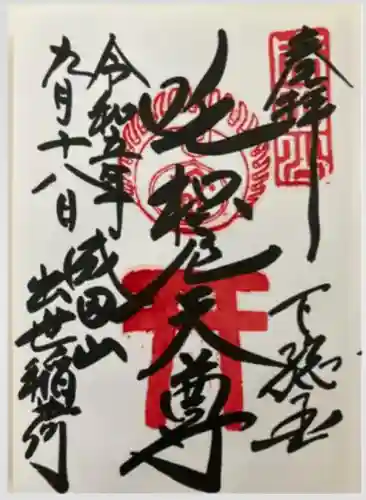 奉拝
下総国
吒枳尼天尊
成田山
出世稲荷
令和五年
九月十八日